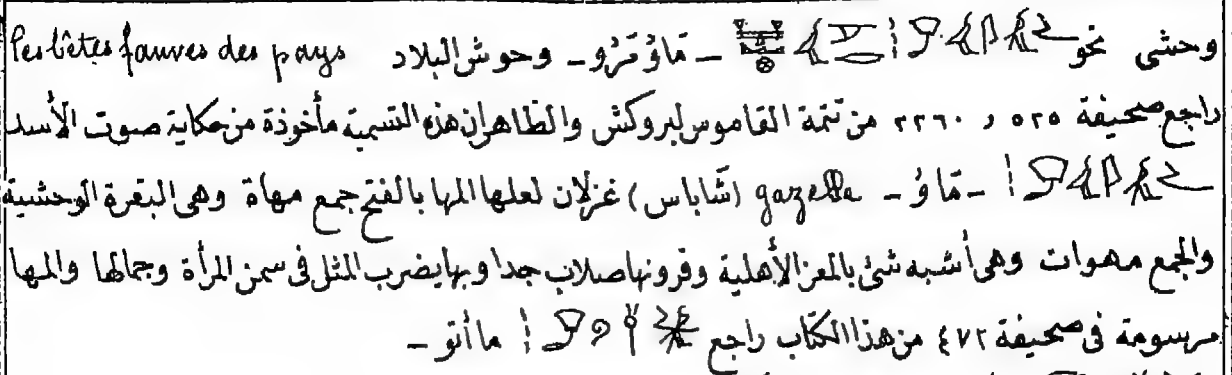 وحشى نحو - مَاوُ مَرُو - وحوش البلاد les bêtes fauves des pays
راجع صحيفة ٥٢٥ و ٢٢٦٠ من تتمة القاموس لبروكش والظاهر ان هذه التسمية مأخوذة من حكاية صوت الأسد
- مَاوُ - gazelle (شاباس) غزلان لعلها المها بالفتح جمع مهاة وهى البقرة الوحشية
والجمع مهوات وهى أشبه شئ بالمعز الأهلية وقرونها صلاب جدا وبها يضرب المثل فى سمن المرأة وجمالها والمها
مرسومة فى صحيفة ٤٧٢ من هذا الكتاب راجع ماأتو -